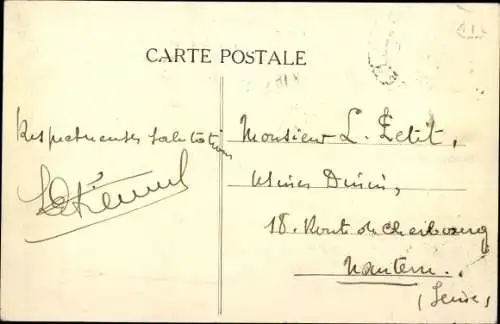 CARTE POSTALE
Respectueuses salutations
Monsieur L. Petit,
Usines
18. Route de Cherbourg
Nanterre.
(Seine)